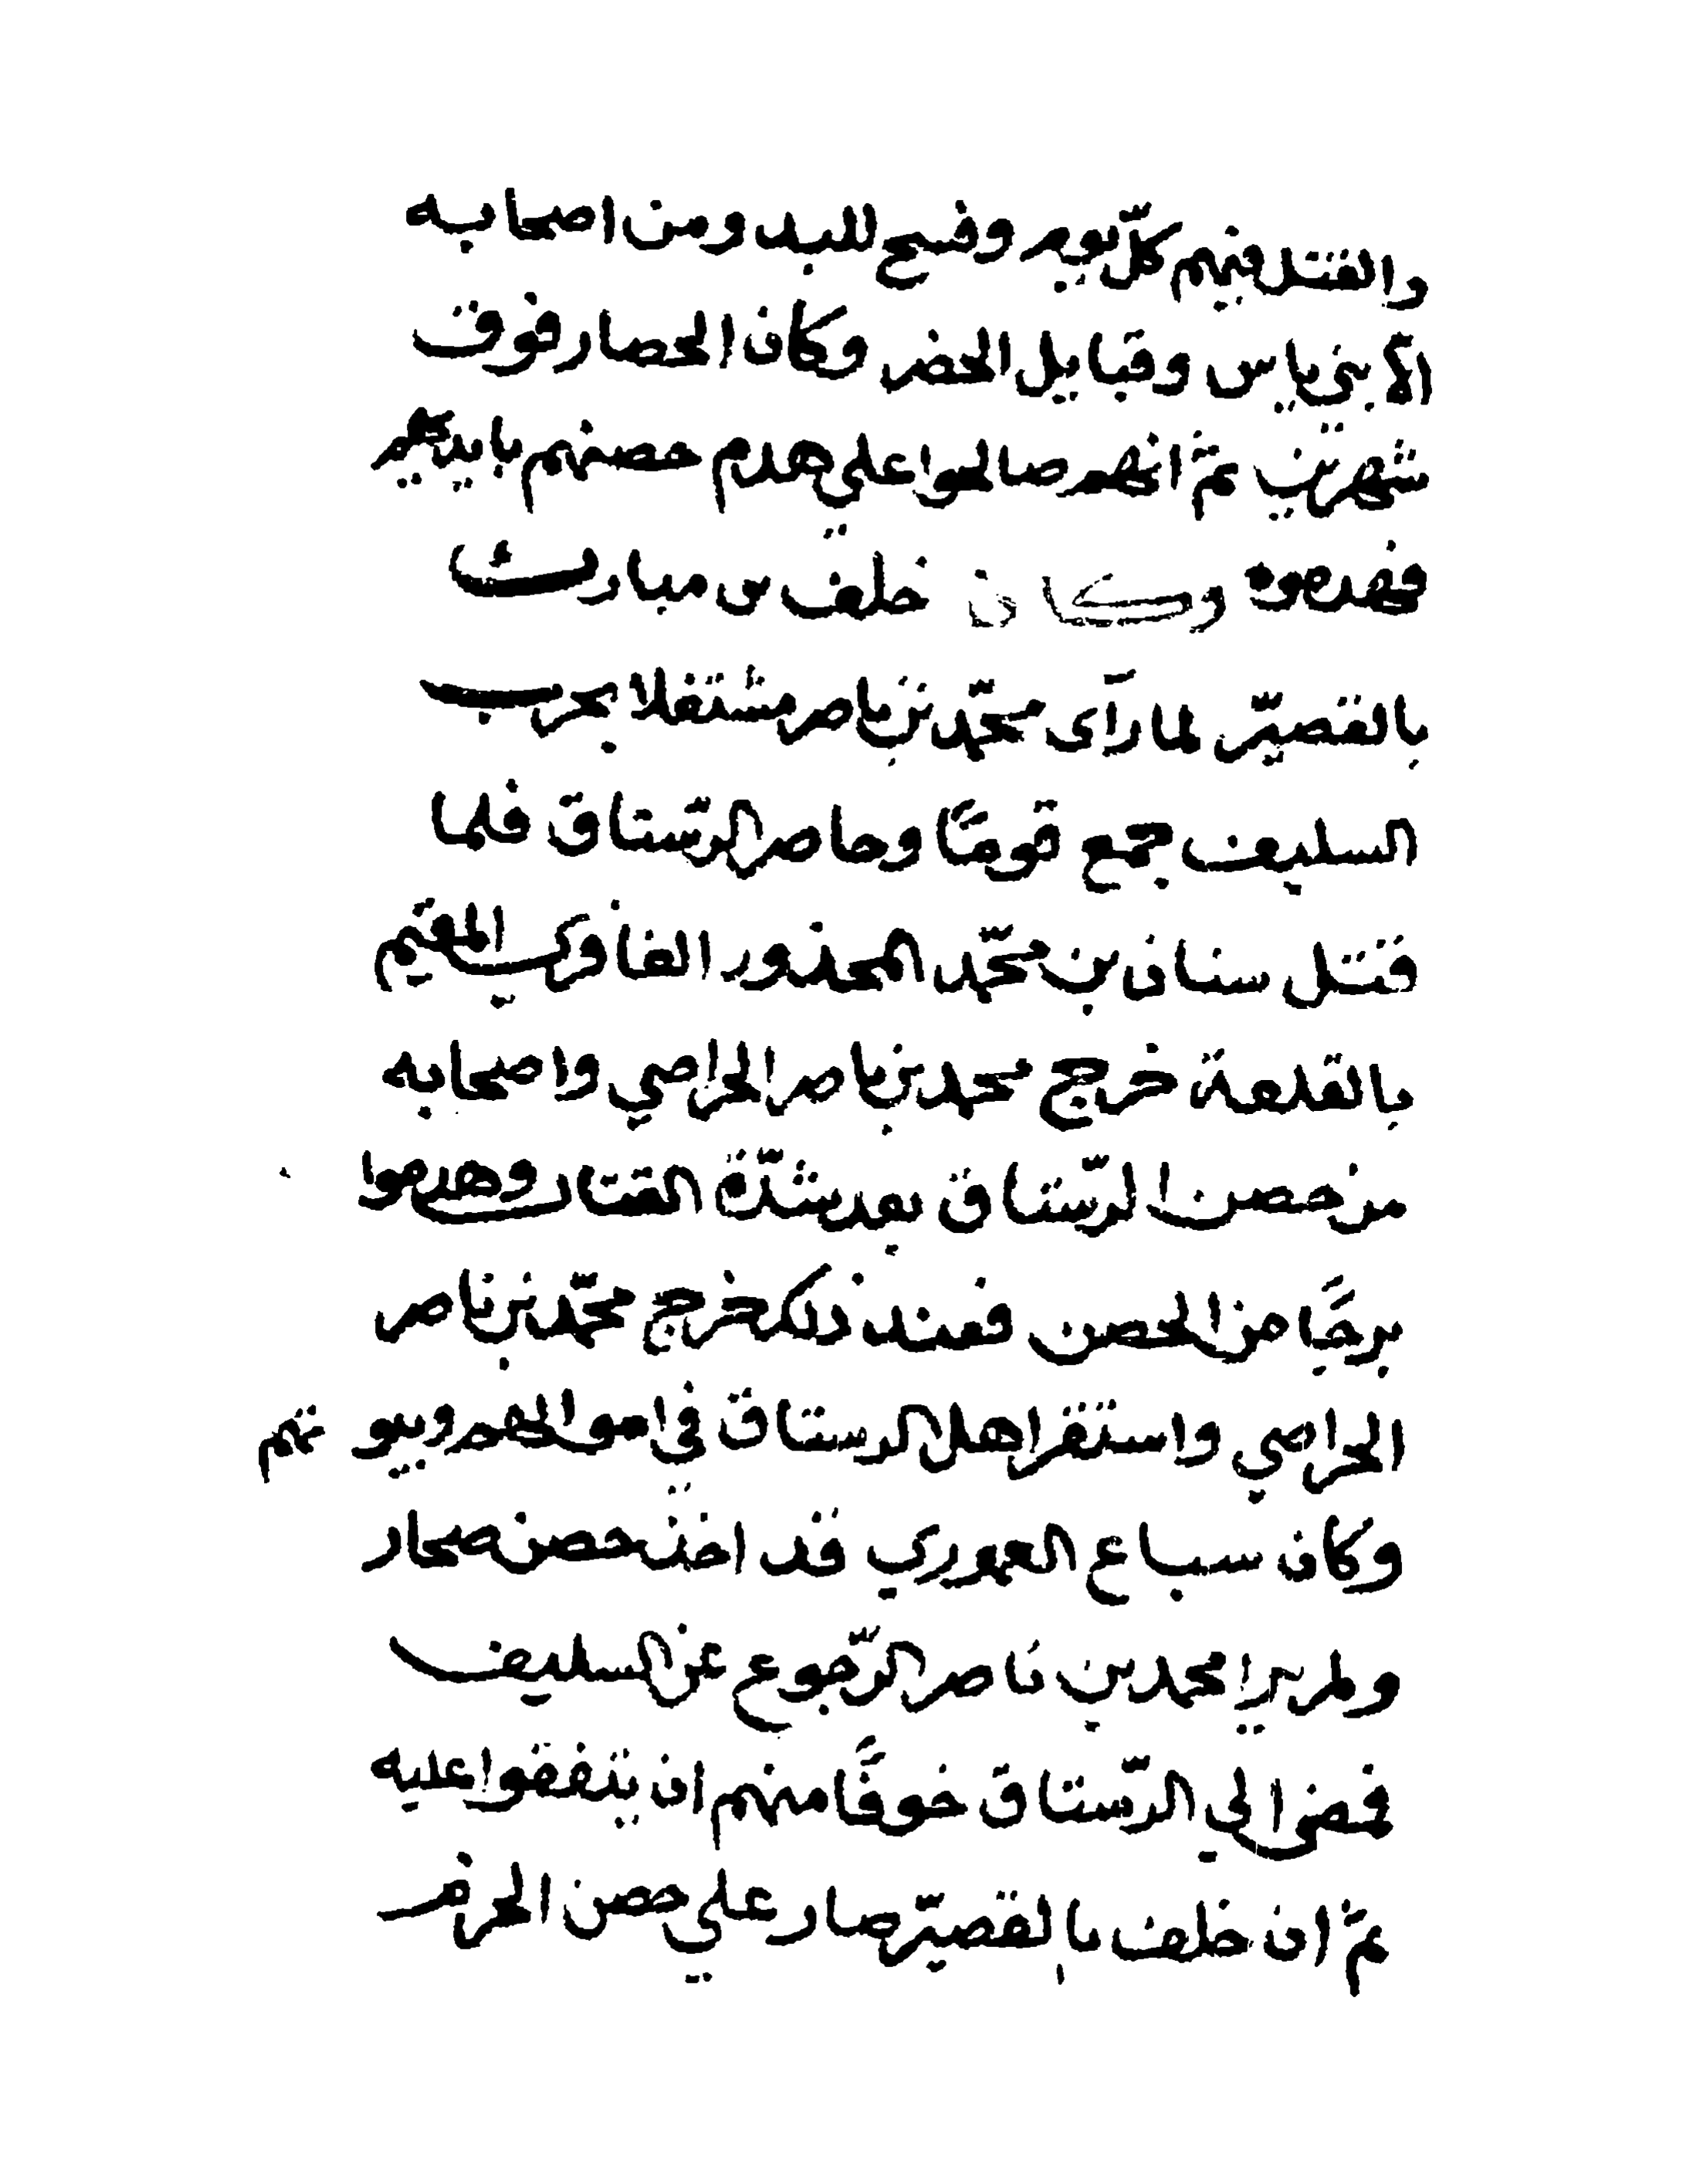 والقتل فيهم كلّ يوم وفسح للبدو من اصحابه
الا بني ياس وقبايل الحضر وكان الحصار فوق
شهرين ثمّ انهم صالحوا علي هدم حصنهم بايديهم
فهدموه وكان خلف بن مبارك
بالقصيّر لما رآى محمّد بن ناصر مشتغلا بحرب
السليف جمع قومًا وحاصر الرّستاق فلما
قتل سنان بن محمّد المحذور الغافري المقيم
بالقلعة خرج محمد بن ناصر الحراصي واصحابه
من حصن الرّستاق بعد شدّة القتال وهدموا
برجًا من الحصن فعند ذلك خرج محمّد بن ناصر
الحراصي واستقر اهل الرستاق في اموالهم وبيوتهم
وكان سباع العموري قد اخذ حصن صحار
ولم يرا محمد بن ناصر الرّجوع عن السليف
فمضى الي الرّستاق خوفًا منهم ان يتفقوا عليه
ثمّ ان خلف بالقصيّر صار علي حصن الحزم